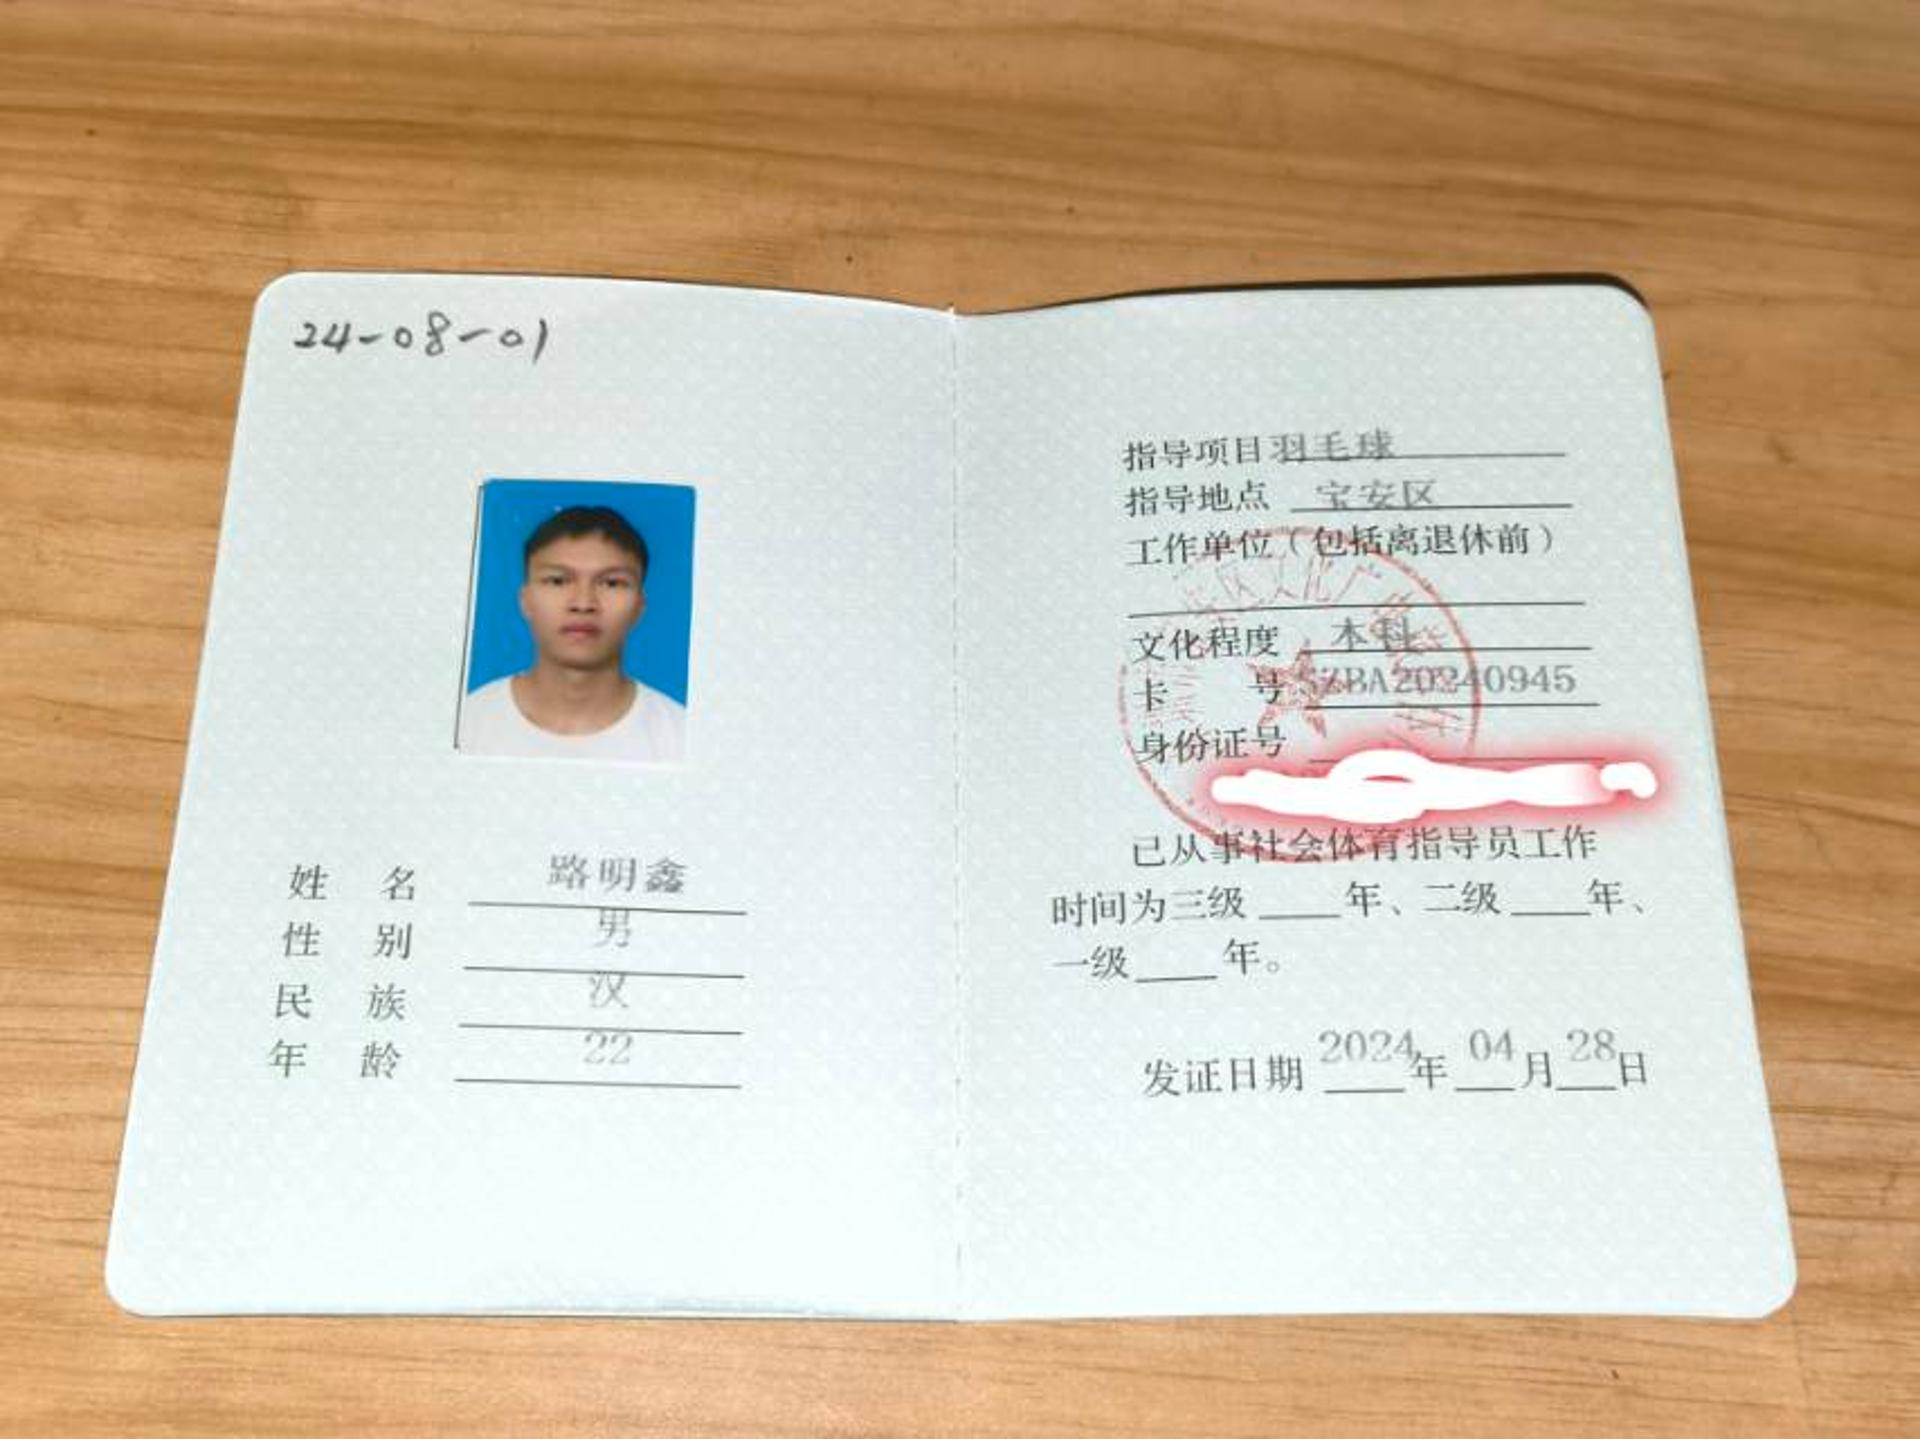 24-08-01
姓 名 路明鑫
性 别 男
民 族 汉
年 龄 22
指导项目 羽毛球
指导地点 宝安区
工作单位（包括离退休前）
文化程度 本科
卡 号 SZBA20240945
身份证号
已从事社会体育指导员工作
时间为三级____年、二级____年、
一级____年。
发证日期 2024年 04月 28日